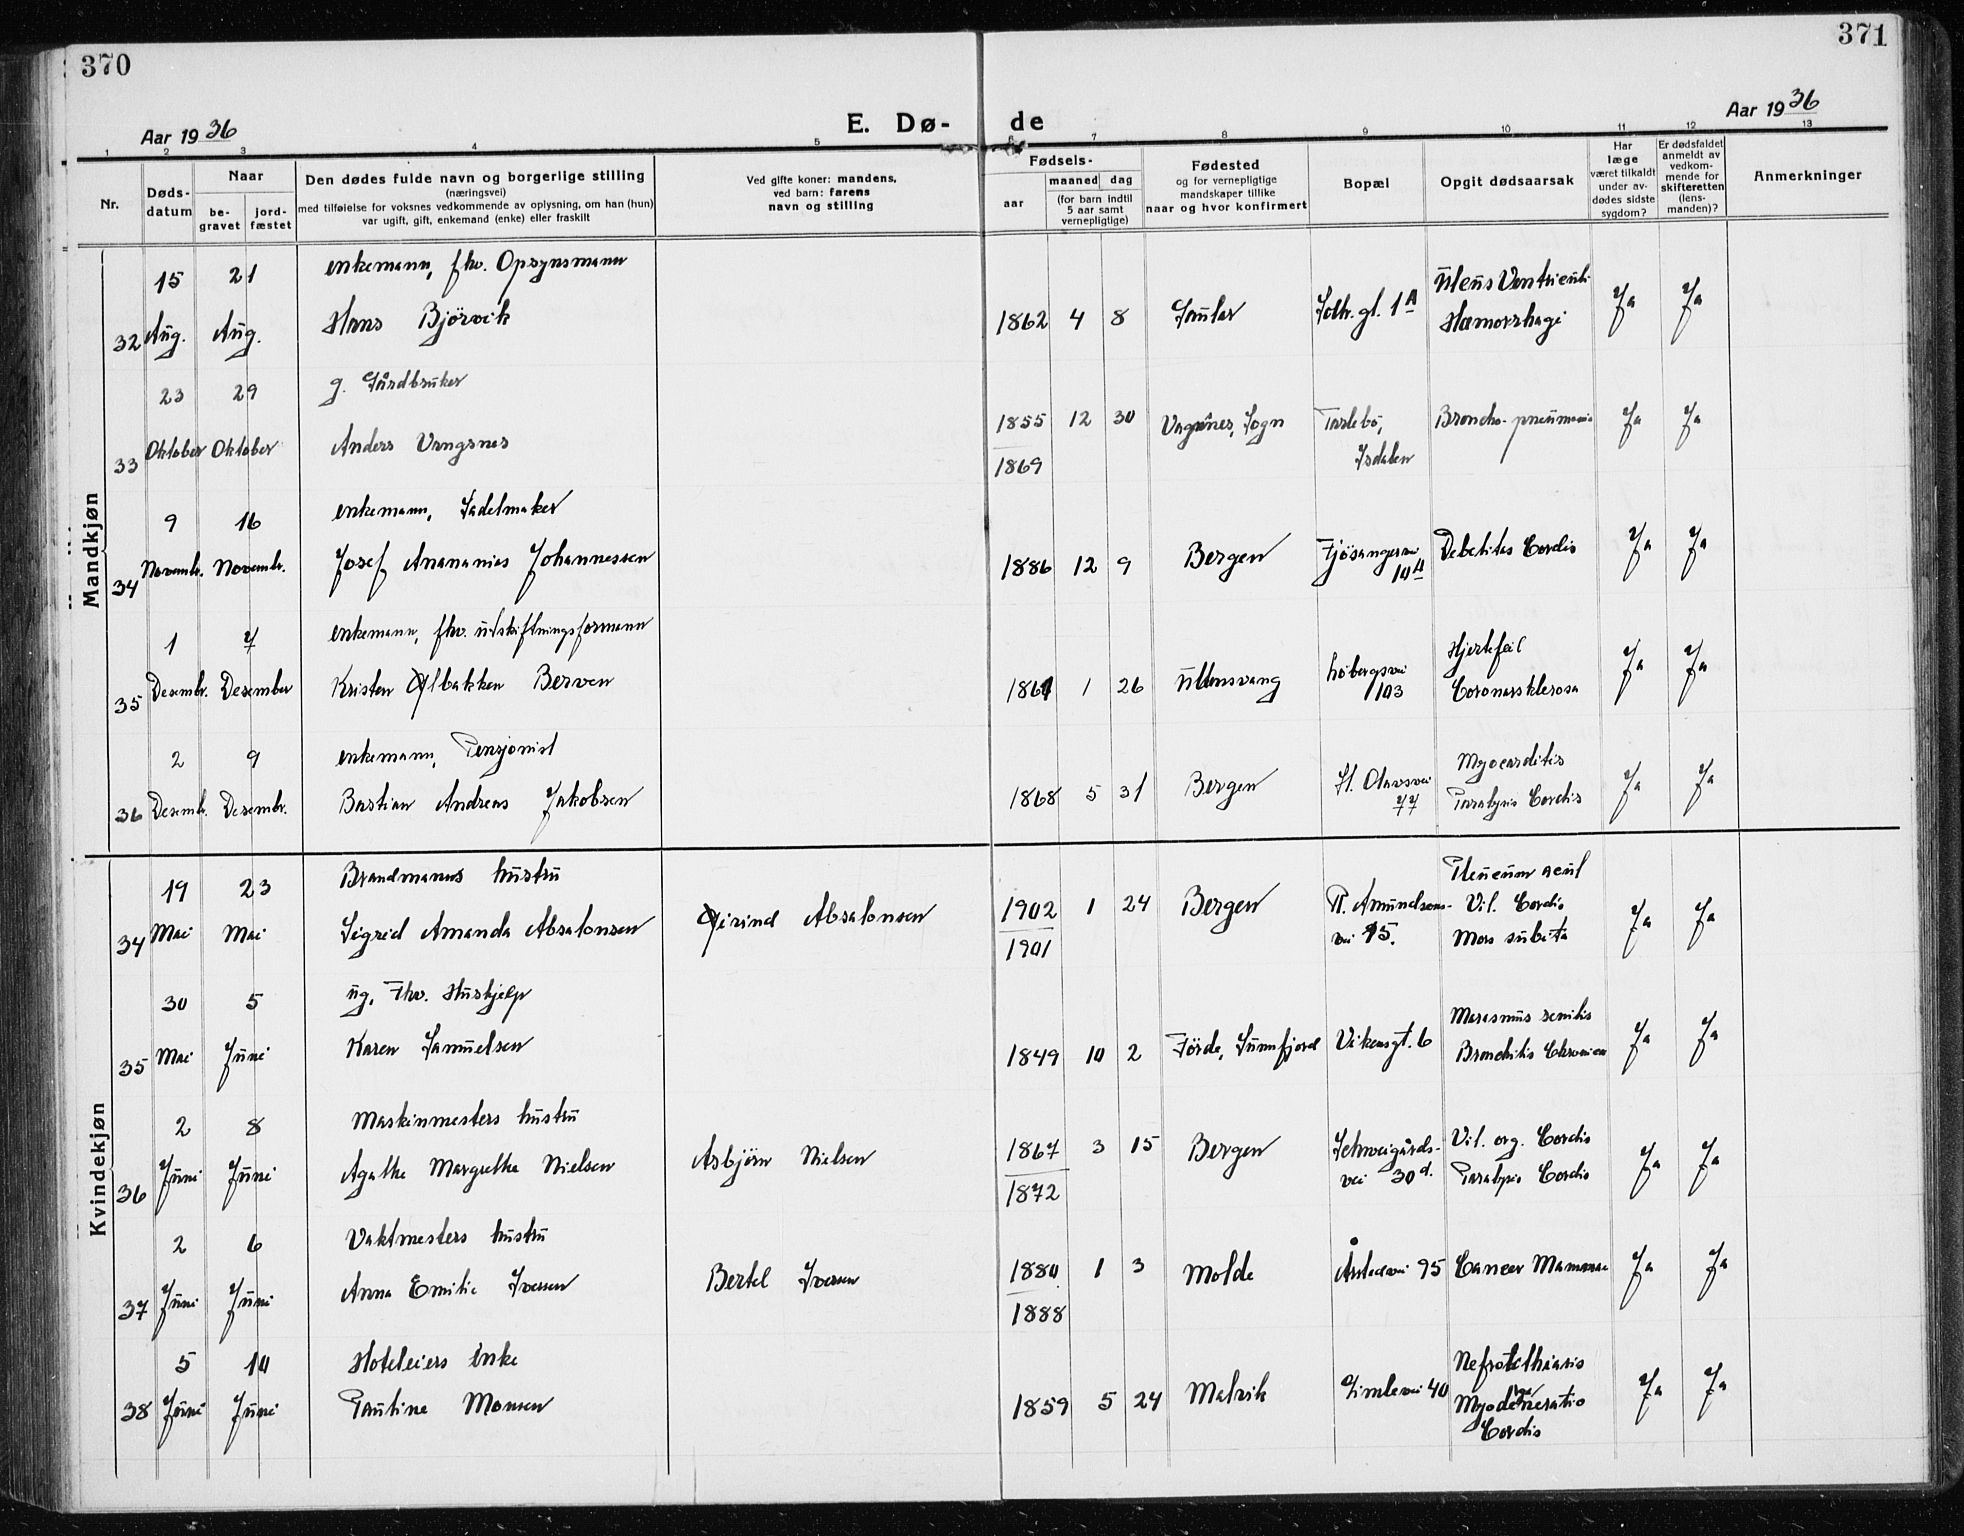 370
371
Aar 1936
E. Dø-
de
Aar 1936
1 2 3 4 5 6 7 8 9 10 11 12 13
Nr.
Døds-
datum
Naar
be-
gravet
jord-
fæstet
Den dødes fulde navn og borgerlige stilling
(næringsvei)
med tilføielse for voksnes vedkommende av oplysning, om han (hun)
var ugift, gift, enkemand (enke) eller fraskilt
Ved gifte koner: mandens,
ved barn: farens
navn og stilling
Fødsels-
aar
maaned dag
(for barn indtil
5 aar samt
vernepligtige)
Fødested
og for vernepligtige
mandskaper tillike
naar og hvor konfirmert
Bopæl
Opgit dødsaarsak
Har
læge
været tilkaldt
under av-
dødes sidste
sygdom?
Er dødsfaldet
anmeldt av
vedkom-
mende for
skifteretten
(lens-
manden)?
Anmerkninger
Mandkjøn
15 21 enkemann, fhv. Opsynsmann
32 Aug. Aug. Hans Bjørvik 1862 4 8 Gaular gt. 1A Ulcus Ventriculi Ja Ja
Hæmorrhagi
23 29 g. Gårdbruker
33 Oktober Oktober Anders Vangsnes 1855 12 30 Sogn Tarlebø, Broncho-pneumoni Ja Ja
1869 Isdalen
9 16 enkemann, Sadelmaker
34 Novembr. Novembr. Josef Ananias Johannessen 1886 12 9 Bergen Fjøsangervei Debilitas Cordis Ja Ja
10A
1 7 enkemann, fhv. utskiftningsformann
35 Desembr. Desember Kristen Ølbakken Berven 1861 1 26 Ullensvang Løbergsvei Hjertefeil Ja Ja
103 Coronarsklerosa
2 9 enkemann, Pensjonist
36 Desembr. Desembr. Bastian Andreas Jakobsen 1868 5 31 Bergen St. Olavsvei Myocarditis Ja Ja
77 Paralysis Cordis
Kvindekjøn
19 23 Brandmanns hustru
34 Mai Mai Sigrid Amanda Absalonsen Øivind Absalonsen 1902 1 24 Bergen R. Amundsens- acut Ja Ja
1901 vei 95. Vit. Cordis
Mors subita
30 5 ug. Fhv. Hushjelp
35 Mai Juni Karen Samuelsen 1849 10 2 Førde, Sunnfjord Vikensgt. 6 Marasmus senilis Ja Ja
Bronchitis Chronica
2 8 Maskinmesters hustru
36 Juni Juni Agathe Margrethe Nielsen Asbjørn Nielsen 1867 3 15 Bergen Schweigårds- Vit. org. Cordis Ja Ja
1872 vei 30d. Paralysis Cordis
2 6 Vaktmesters hustru
37 Juni Juni Anna Emilie Iversen Bertel Iversen 1880 1 3 Molde Årstadvei 95 Cancer Mammae Ja Ja
1888
5 10 Hoteleiers Enke
38 Juni Juni Pauline Monsen 1859 5 24 Malvik Gimlevei 40 Nefrolithiasis Ja Ja
Myodegeneratio
Cordis